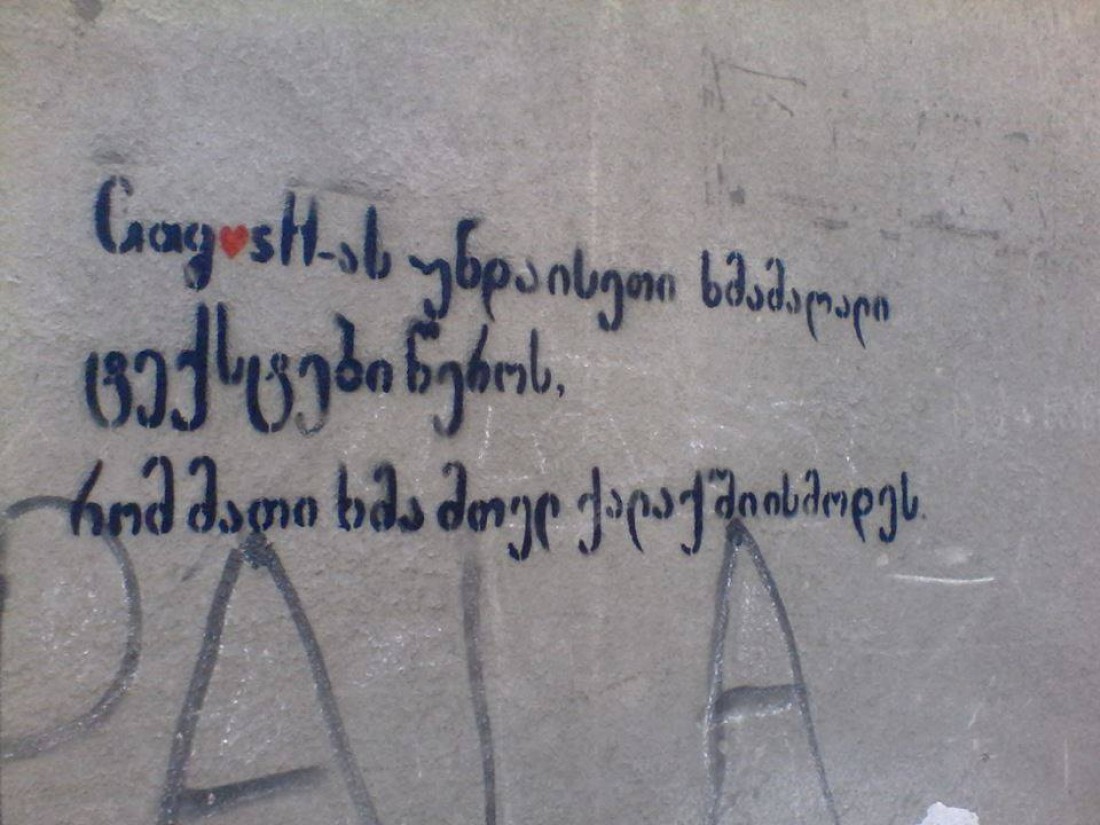 Gagosh-ას უნდა ისეთი ხმამაღალი
ტექსტები წეროს,
რომ მათი ხმა მთელ ქალაქში ისმოდეს.
PAIA